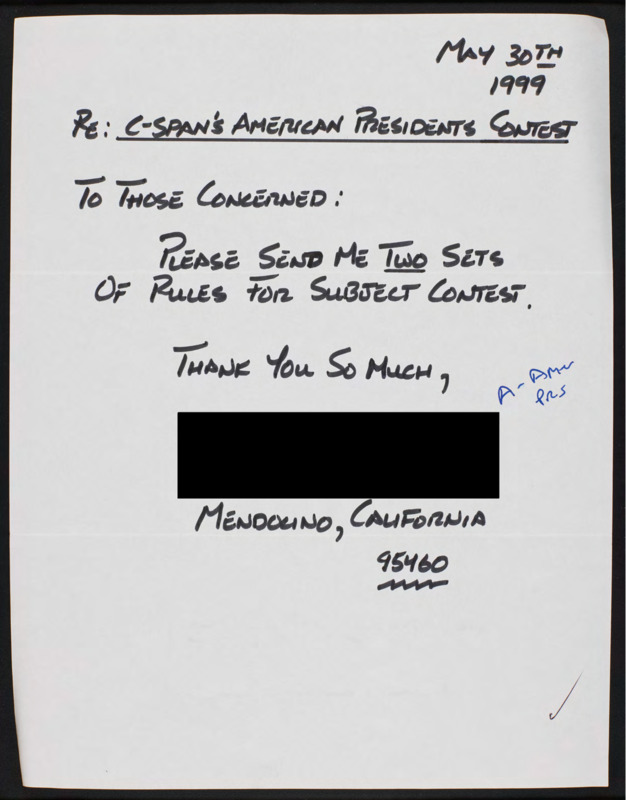 MAY 30TH
1999
RE: C-SPAN'S AMERICAN PRESIDENTS CONTEST
TO THOSE CONCERNED:
PLEASE SEND ME TWO SETS
OF RULES FOR SUBJECT CONTEST.
THANK YOU SO MUCH,
A-AMER
PRS
MENDOCINO, CALIFORNIA
95460